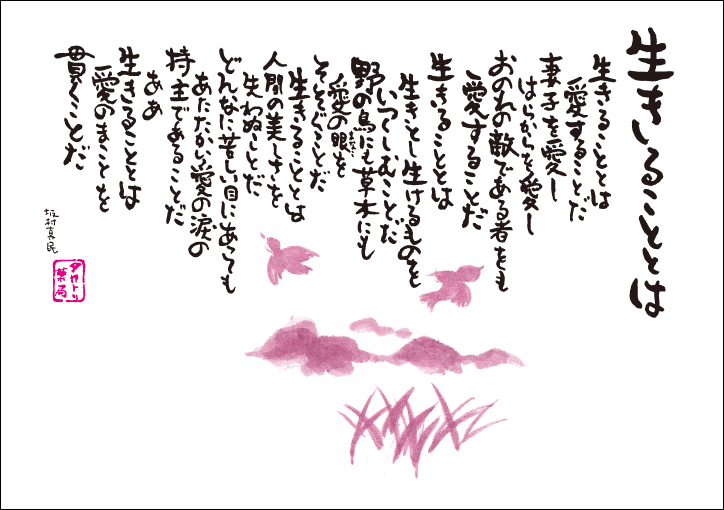 生きることとは
生きることとは
愛することだ
妻子を愛し
はらからを愛し
おのれの敵である者をも
愛することだ
生きることとは
生きとし生けるものを
いつくしむことだ
野の鳥にも草木にも
愛の眼を
そそぐことだ
生きることとは
人間の美しさを
失わぬことだ
どんなに苦しい目にあっても
あたたかい愛の涙の
持主であることだ
ああ
生きることとは
愛のまことを
貫くことだ
坂村真民
タカトリ
薬局